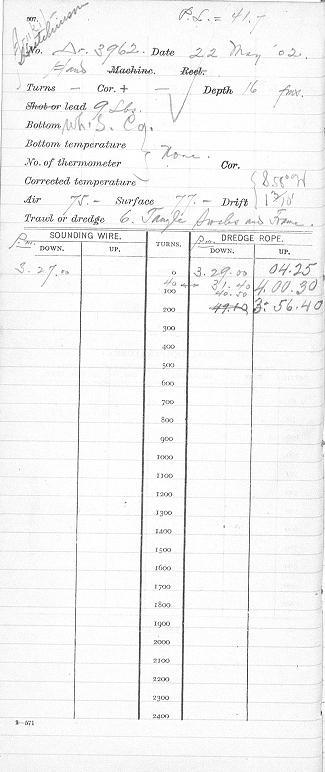 907.
P.L. = 41.7
Hutchinson
No. Dr. 3962. Date 22 May '02.
Hand Machine. Reel.
Turns — Cor. + — Depth 16 fms.
Shot or lead 9 Lbs.
Bottom Wh. S. Cg.
Bottom temperature
No. of thermometer None. Cor.
Corrected temperature S 58° W
Air 75.— Surface 77.— Drift
Trawl or dredge 6. Tangle Swabs and Frame.
SOUNDING WIRE. TURNS. DREDGE ROPE.
P.m. P.m.
DOWN. UP. DOWN. UP.
3.27.00 0 3.29.00 04.25
40 31.40
100 40.50 4.00.30
200 49.10 3.56.40
300
400
500
600
700
800
900
1000
1100
1200
1300
1400
1500
1600
1700
1800
1900
2000
2100
2200
2300
2400
2—571